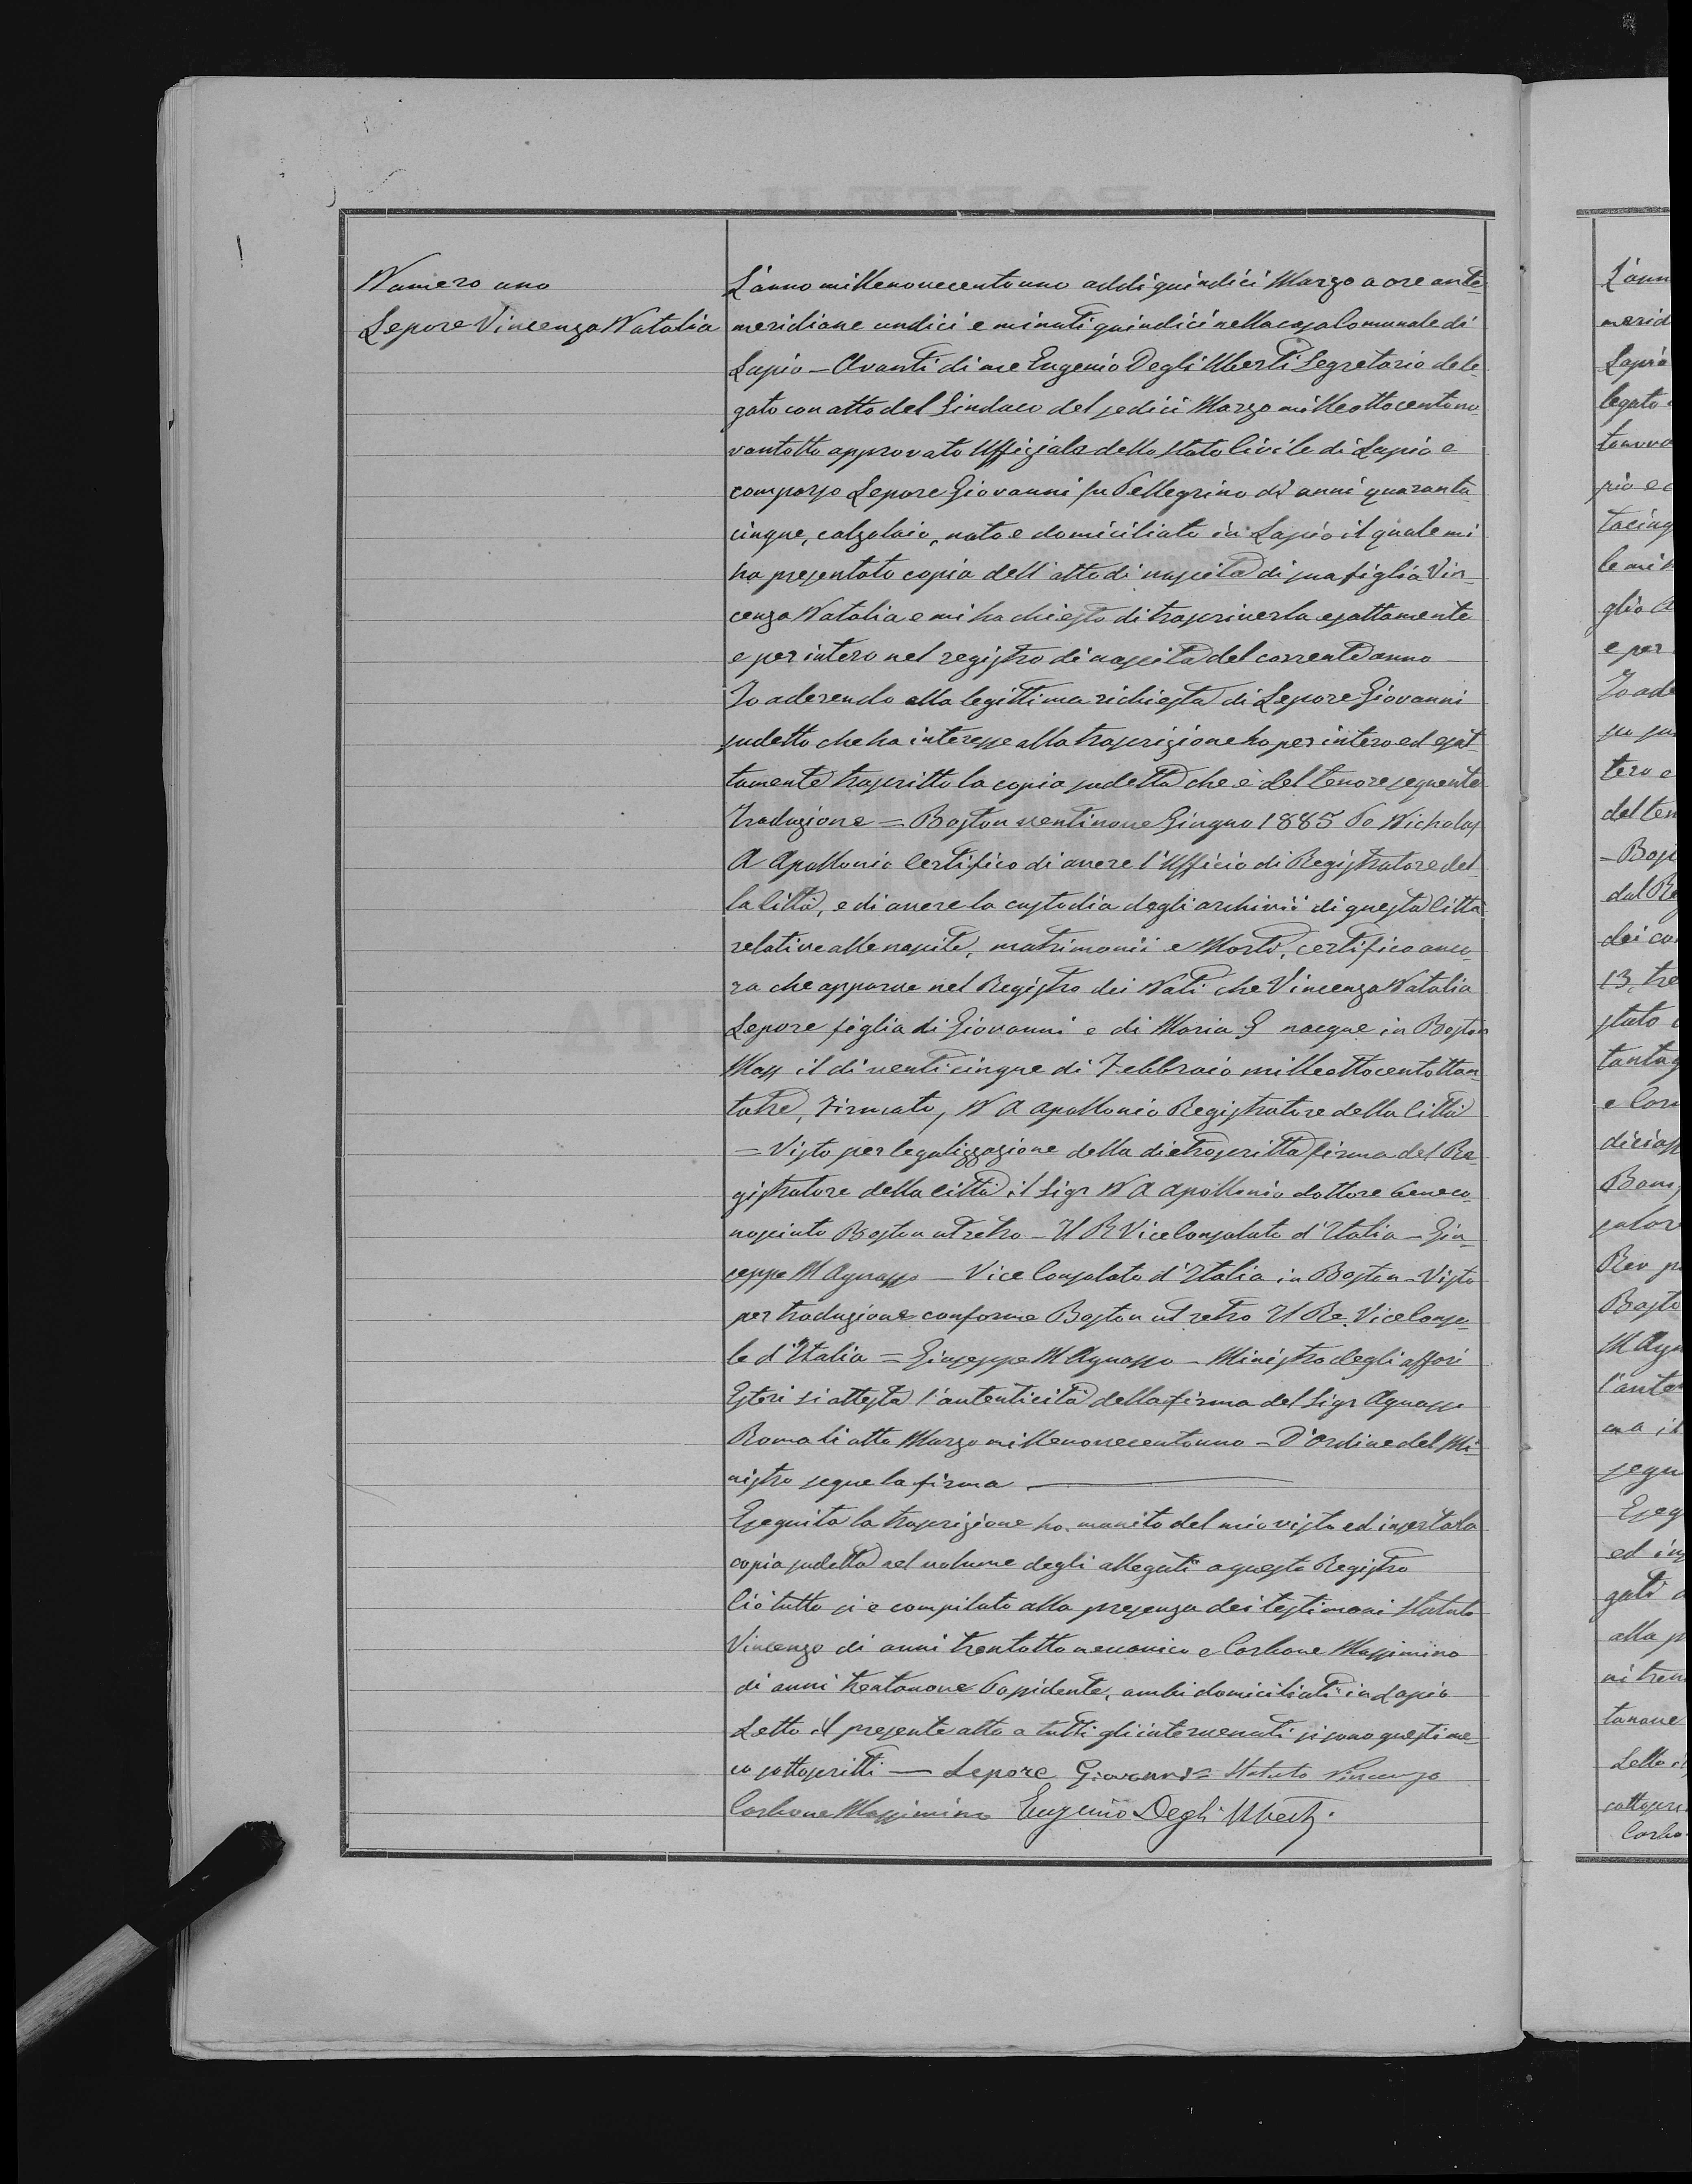 Numero uno
Lepore Vincenza Natalia
L'anno millenovecentouno addì quindici Marzo a ore ante-
meridiane undici e minuti quindici nella casa Comunale di
Lapio – Avanti di me Eugenio Degli Uberti Segretario dele-
gato con atto del Sindaco del sedici Marzo milleottocentono-
vantotto approvato Uffiziale dello Stato Civile di Lapio è
comparso Lepore Giovanni fu Pellegrino di anni quaranta-
cinque, calzolaio, nato e domiciliato in Lapio il quale mi
ha presentato copia dell'atto di nascita di sua figlia Vin-
cenza Natalia e mi ha chiesto di trascriverla esattamente
e per intero nel registro di nascita del corrente anno –
Io aderendo alla legittima richiesta di Lepore Giovanni
sudetto che ha interesse alla trascrizione ho per intero ed esat-
tamente trascritto la copia sudetta che è del tenore seguente
Traduzione = Boston ventinove Giugno 1885 Io Nicholas
A Apollonio Certifico di avere l'Ufficio di Registratore del-
la Città, e di avere la custodia degli archivii di questa Città
relative alle nascite, matrimonii e Morti, certifico anco-
ra che apparve nel Registro dei Nati che Vincenza Natalia
Lepore figlia di Giovanni e di Maria G nacque in Boston
Mass il dì venticinque di Febbraio milleottocentottan-
tatre, Firmato, N A Apollonio Registratore della Città
= Visto per legalizzazione della dietroscritta firma del Re-
gistratore della Città il Sigr N A Apollonio dottore bene co-
nosciuto Boston ut retro – Il R Vice Consolato d'Italia – Giu-
seppe M – Vice Consolato d'Italia in Boston – Visto
per traduzione conforme Boston ut retro Il Re. Vice Conso-
le d'Italia = Giuseppe M – Ministro degli affari
Esteri si attesta l'autenticità della firma del Sigr
Roma li otto Marzo millenovecentouno – D'Ordine del Mi-
nistro segue la firma
Eseguita la trascrizione ho munito del mio visto ed inserta la
copia sudetta nel volume degli allegati a questo Registro
Ciò tutto si è compilato alla presenza dei testimoni Statuto
Vincenzo di anni trentotto meccanico e Carbone Massimino
di anni trentanove Possidente, ambi domiciliati in Lapio
Letto il presente atto a tutti gli intervenuti si sono questi me-
co sottoscritti — Lepore Giovanni = Statuto Vincenzo
Carbone Massimino Eugenio Degli Uberti.
L'ann
merid
Lapio
legato
pio e
tacinq
le mi h
e per
Io ade
tero e
del ten
– Bost
dal Re
13, tre
stato
tantaq
Bost
l'aute
segu
Eseg
ed ins
gati a
alla p
tanove
Letto il
sottoscri
Carbo